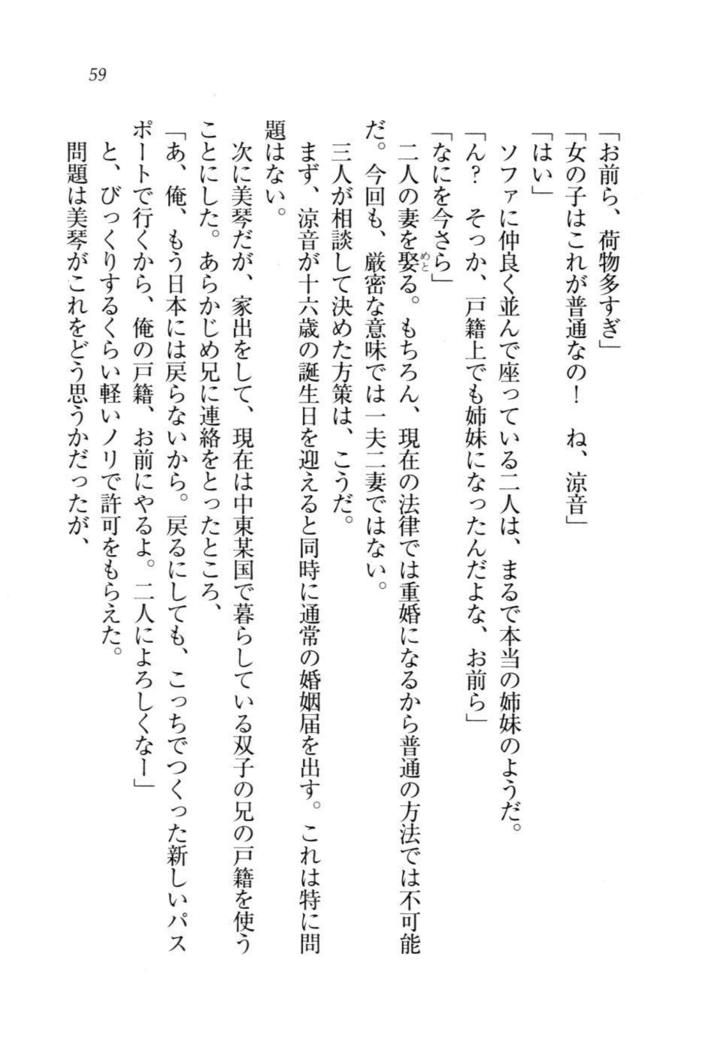 59
「お前ら、荷物多すぎ」
「女の子はこれが普通なの！　ね、涼音」
「はい」
　ソファに仲良く並んで座っている二人は、まるで本当の姉妹のようだ。
「ん？　そっか、戸籍上でも姉妹になったんだよな、お前ら」
「なにを今さら」
　二人の妻を娶る。もちろん、現在の法律では重婚になるから普通の方法では不可能
めと
だ。今回も、厳密な意味では一夫二妻ではない。
　三人が相談して決めた方策は、こうだ。
　まず、涼音が十六歳の誕生日を迎えると同時に通常の婚姻届を出す。これは特に問
題はない。
　次に美琴だが、家出をして、現在は中東某国で暮らしている双子の兄の戸籍を使う
ことにした。あらかじめ兄に連絡をとったところ、
「あ、俺、もう日本には戻らないから。戻るにしても、こっちでつくった新しいパス
ポートで行くから、俺の戸籍、お前にやるよ。二人によろしくなー」
　と、びっくりするくらい軽いノリで許可をもらえた。
　問題は美琴がこれをどう思うかだったが、